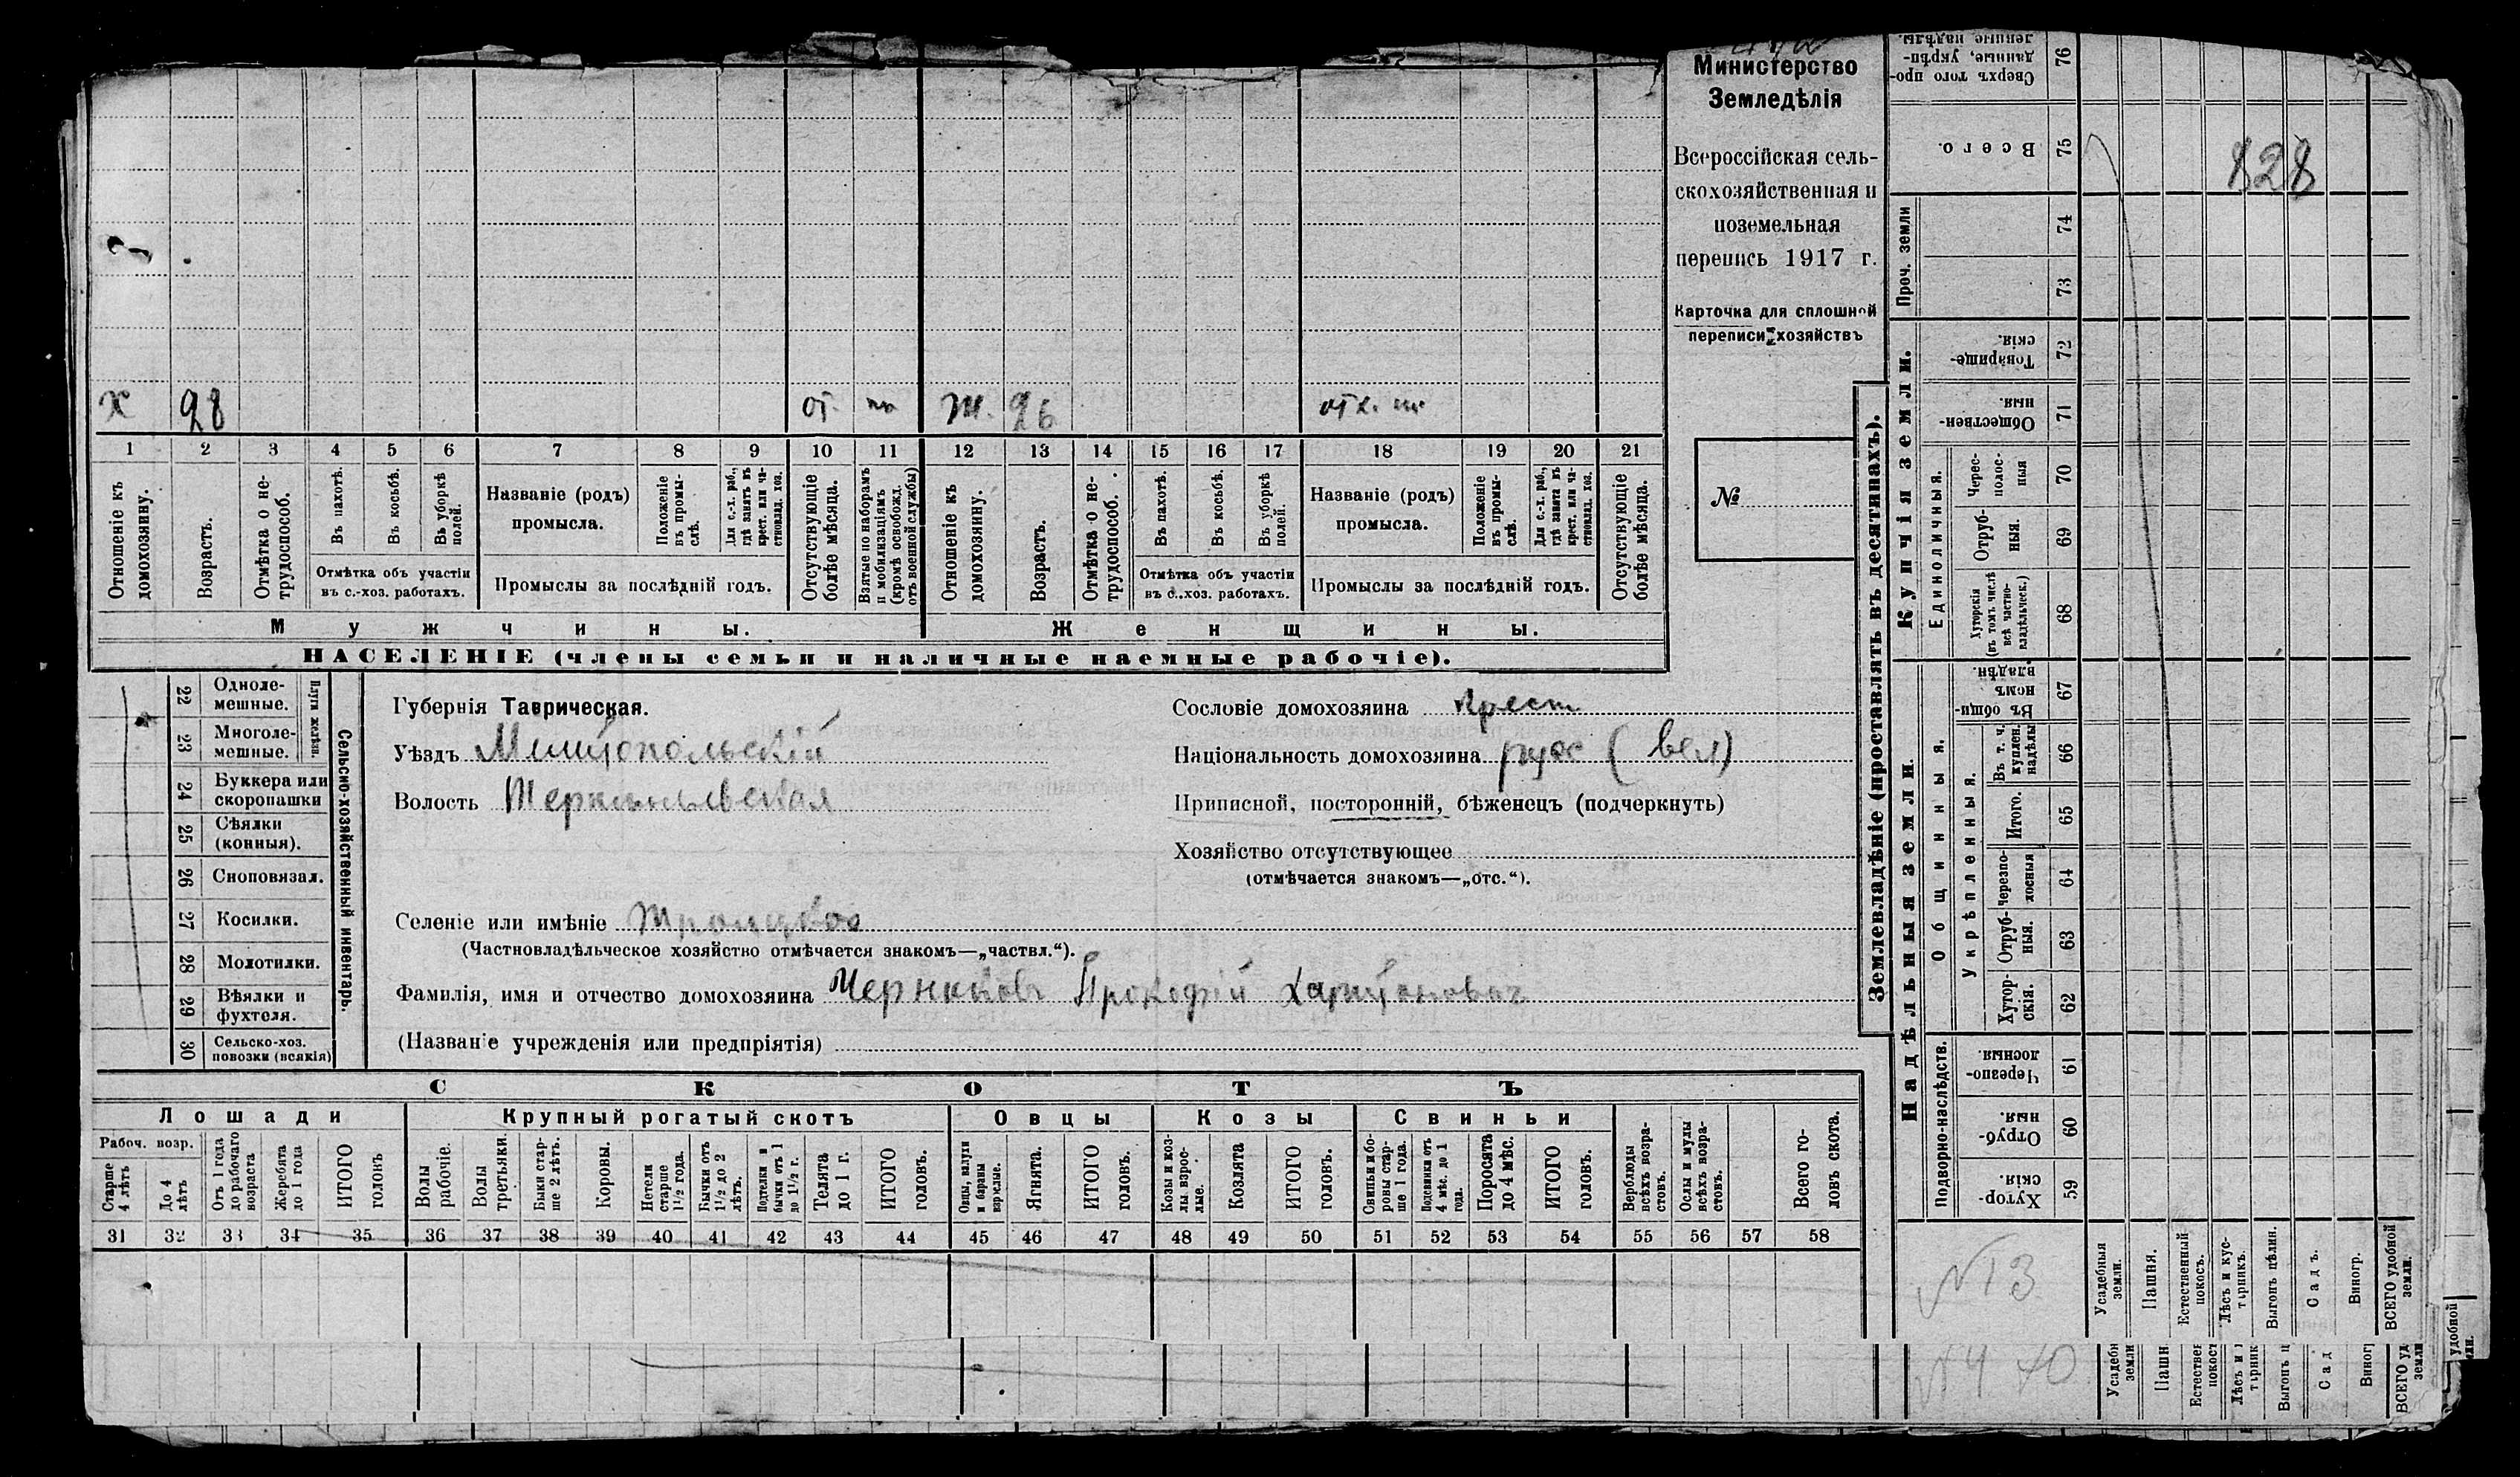 Министерство
Земледѣлія
Всероссійская сель-
скохозяйственная и
поземельная
перепись 1917 г.
Карточка для сплошной
переписи хозяйствъ
№
х 28 от. Ж. 26
1 2 3 4 5 6 7 8 9 10 11 12 13 14 15 16 17 18 19 20 21
Отношеніе къ домохозяину.
Возрастъ.
Отмѣтка о не-трудоспособ.
Въ пахотѣ.
Въ косьбѣ.
Въ уборкѣ полей.
Отмѣтка объ участіи
въ с.-хоз. работахъ.
Названіе (родъ)
промысла.
Положеніе въ промы-слѣ.
Для с.-х. раб., гдѣ занятъ въ крест. или ча-стновлад. хоз.
Промыслы за послѣдній годъ.
Отсутствующіе болѣе мѣсяца.
Взятые по наборамъ и мобилизаціямъ (кромѣ освобожд. отъ военной службы)
Отношеніе къ домохозяину.
Возрастъ.
Отмѣтка о не-трудоспособ.
Въ пахотѣ.
Въ косьбѣ.
Въ уборкѣ полей.
Отмѣтка объ участіи
въ с..хоз. работахъ.
Названіе (родъ)
промысла.
Положеніе въ промы-слѣ.
Для с.-х. раб., гдѣ занята въ крест. или ча-стновлад. хоз.
Промыслы за послѣдній годъ.
Отсутствующіе болѣе мѣсяца.
Мужчины. Женщины.
НАСЕЛЕНІЕ (члены семьи и наличные наемные рабочіе).
Сельско-хозяйственный инвентарь.
Плуги желѣзн.
22 Одноле-мешные.
23 Многоле-мешные.
24 Буккера или скоропашки
25 Сѣялки (конныя).
26 Сноповязал.
27 Косилки.
28 Молотилки.
29 Вѣялки и фухтеля.
30 Сельско-хоз. повозки (всякія)
Губернія Таврическая.
Уѣздъ Мелитопольскій
Волость
Селеніе или имѣніе Троицкое
(Частновладѣльческое хозяйство отмѣчается знакомъ—„частвл.“).
Фамилія, имя и отчество домохозяина Черниковъ Прокофій Харитоновичъ
(Названіе учрежденія или предпріятія)
Сословіе домохозяина крест
Національность домохозяина русс (вел)
Приписной, посторонній, бѣженецъ (подчеркнуть)
Хозяйство отсутствующее
(отмѣчается знакомъ—„отс.“).
СКОТЪ
Лошади Крупный рогатый скотъ Овцы Козы Свиньи
Рабоч. возр.
Старше 4 лѣтъ
До 4 лѣтъ
Отъ 1 года до рабочаго возраста
Жеребята до 1 года
ИТОГО головъ
Волы рабочіе.
Волы третьяки.
Быки стар-ше 2 лѣтъ.
Коровы.
Нетели старше 1½ года.
Бычки отъ 1½ до 2 лѣтъ.
Подтелки и бычки отъ 1 до 1½ г.
Телята до 1 г.
ИТОГО головъ.
Овцы, валухи и бараны взрослые.
Ягнята.
ИТОГО головъ.
Козы и коз-лы взрос-лые.
Козлята
ИТОГО головъ.
Свиньи и бо-ровы стар-ше 1 года.
Подсвинки отъ 4 мѣс. до 1 года.
Поросята до 4 мѣс.
ИТОГО головъ.
Верблюды всѣхъ возра-стовъ.
Ослы и мулы всѣхъ возра-стовъ.
Всего го-ловъ скота.
31 32 33 34 35 36 37 38 39 40 41 42 43 44 45 46 47 48 49 50 51 52 53 54 55 56 57 58
Землевладѣніе (проставлять въ десятинахъ).
Сверхъ того про-данные, укрѣп-ленные надѣлы. 76
Всего. 75
828
Проч. земли
74
73
Купчія земли.
Товарище-скія. 72
Обществен-ныя. 71
Единоличныя.
Черес-полос-ныя 70
Отруб-ныя. 69
Хуторскія (въ томъ числѣ всѣ частно-владѣльческ.) 68
Надѣльныя земли.
Общинныя.
Въ общи-номъ владѣн. 67
Укрѣпленныя.
Въ т. ч. куплен. надѣлы 66
Итого. 65
Черезпо-лосныя 64
Отруб-ныя. 63
Хутор-скія. 62
Подворно-наслѣдств.
Черезпо-лосныя. 61
Отруб-ныя. 60
Хутор-скія. 59
№ 13
Усадебныя земли.
Пашня.
Естественный покосъ.
Лѣсъ и кус-тарникъ.
Выгонъ цѣлин.
Садъ.
Виногр.
ВСЕГО удобной земли.
удобной